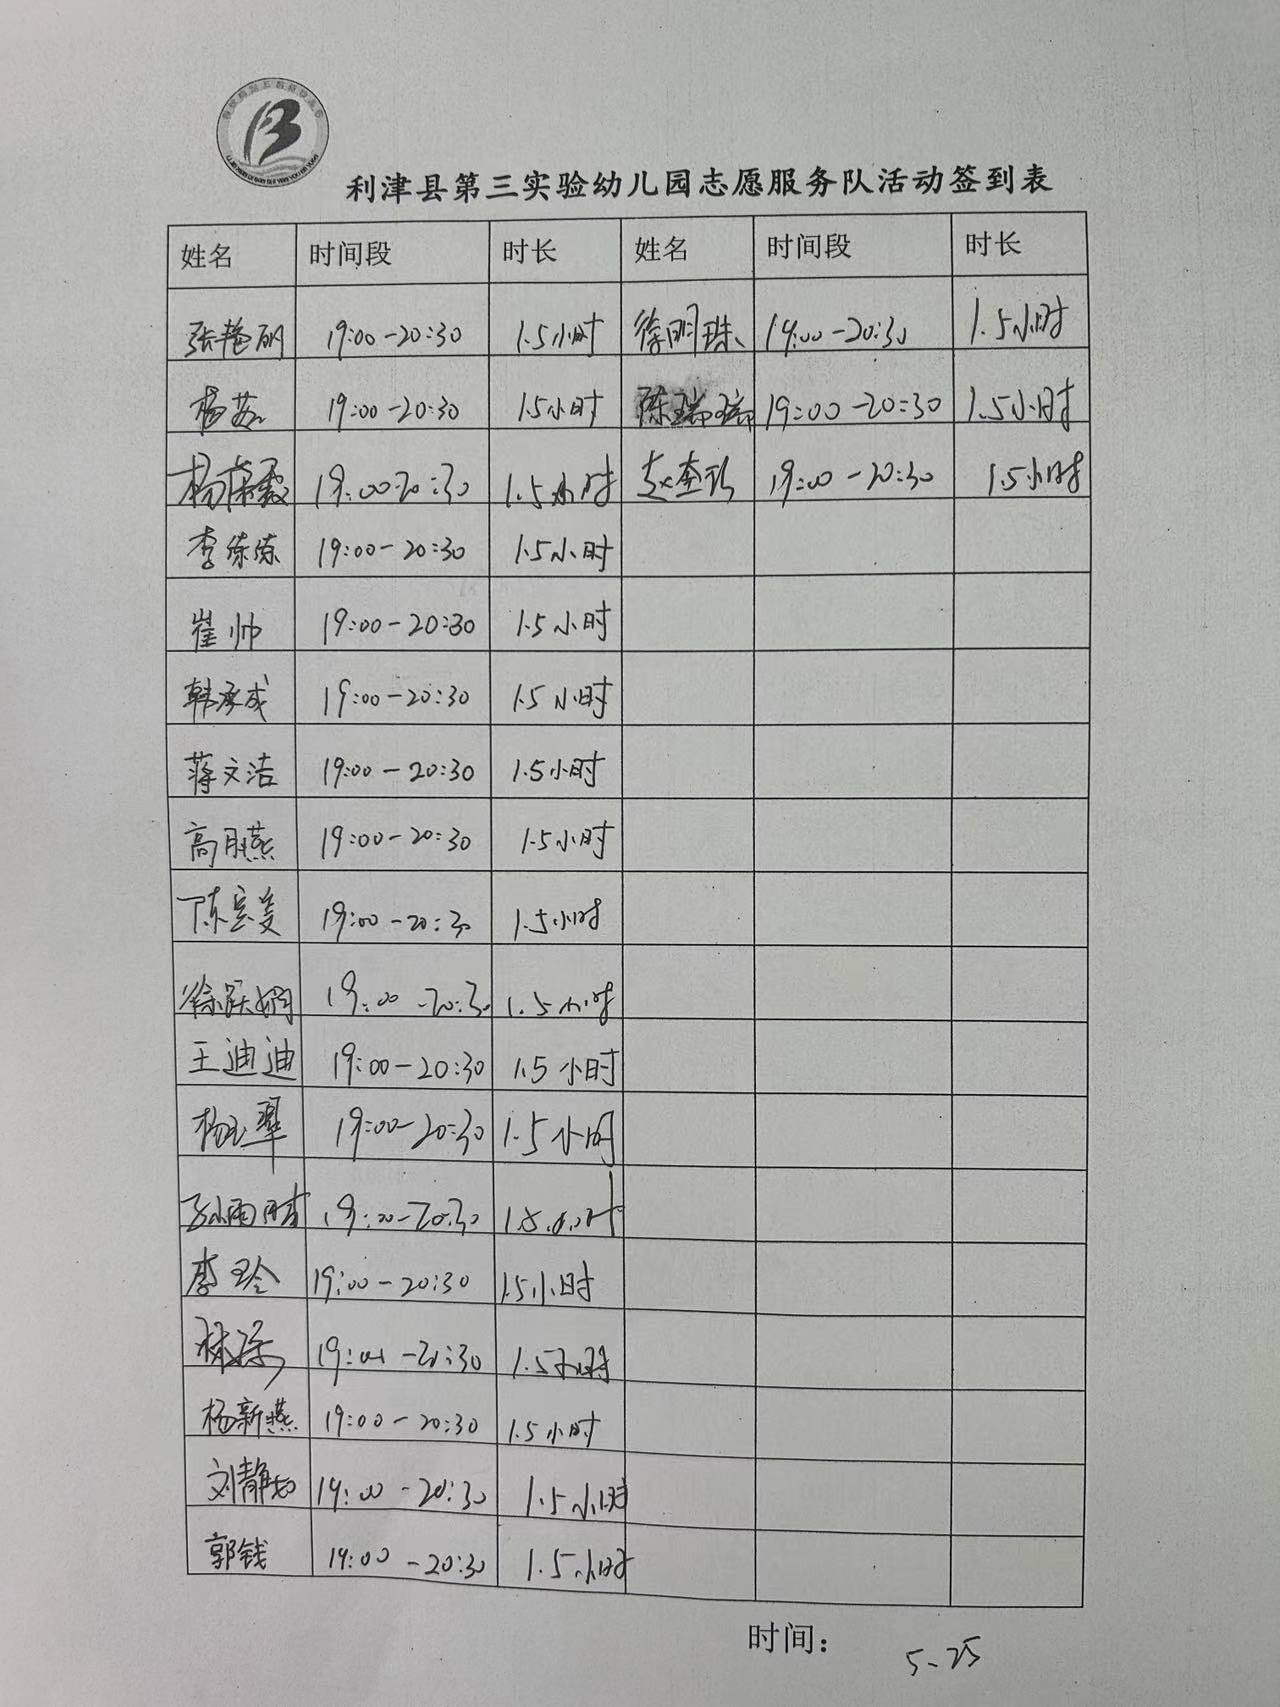 利津县第三实验幼儿园志愿服务队活动签到表
姓名 时间段 时长 姓名 时间段 时长
张艳丽 19:00-20:30 1.5小时 徐明珠 19:00-20:30 1.5小时
杨茹 19:00-20:30 1.5小时 陈瑞瑞 19:00-20:30 1.5小时
杨荣霞 19:00 20:30 1.5小时 赵奎珍 19:00-20:30 1.5小时
李练练 19:00-20:30 1.5小时
崔帅 19:00-20:30 1.5小时
韩承成 19:00-20:30 1.5小时
蒋文洁 19:00-20:30 1.5小时
高月燕 19:00-20:30 1.5小时
陈 19:00-20:30 1.5小时
徐跃娴 19:00-20:30 1.5小时
王迪迪 19:00-20:30 1.5小时
杨玉翠 19:00-20:30 1.5小时
孙雨晴 19:00-20:30 1.5小时
李玲 19:00-20:30 1.5小时
林 19:00-20:30 1.5小时
杨新燕 19:00-20:30 1.5小时
刘静 19:00-20:30 1.5小时
郭钱 19:00-20:30 1.5小时
时间： 5-25